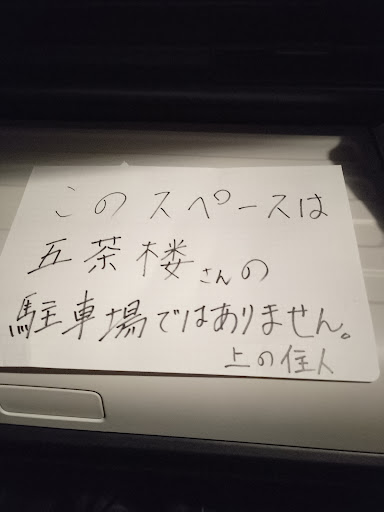 このスペースは
五茶楼さんの
駐車場ではありません。
上の住人